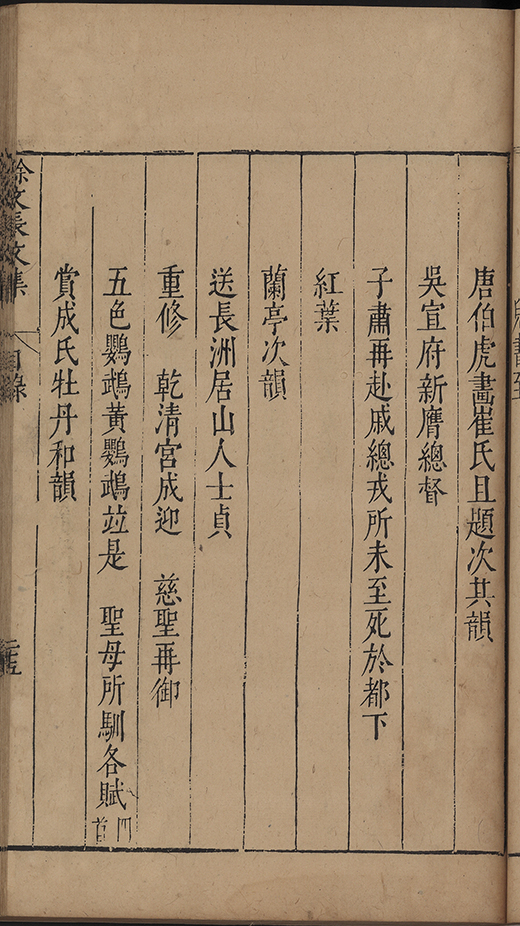 唐伯虎畵崔氏且題次其韻
吳宣府新膺總督
子肅再赴戚總戎所未至死於都下
紅葉
蘭亭次韻
送長洲居山人士貞
重修　乾清宮成迎　慈聖再御
五色鸚鵡黃鸚鵡竝是　聖母所馴各賦四首
賞成氏牡丹和韻
徐文長文集　目錄